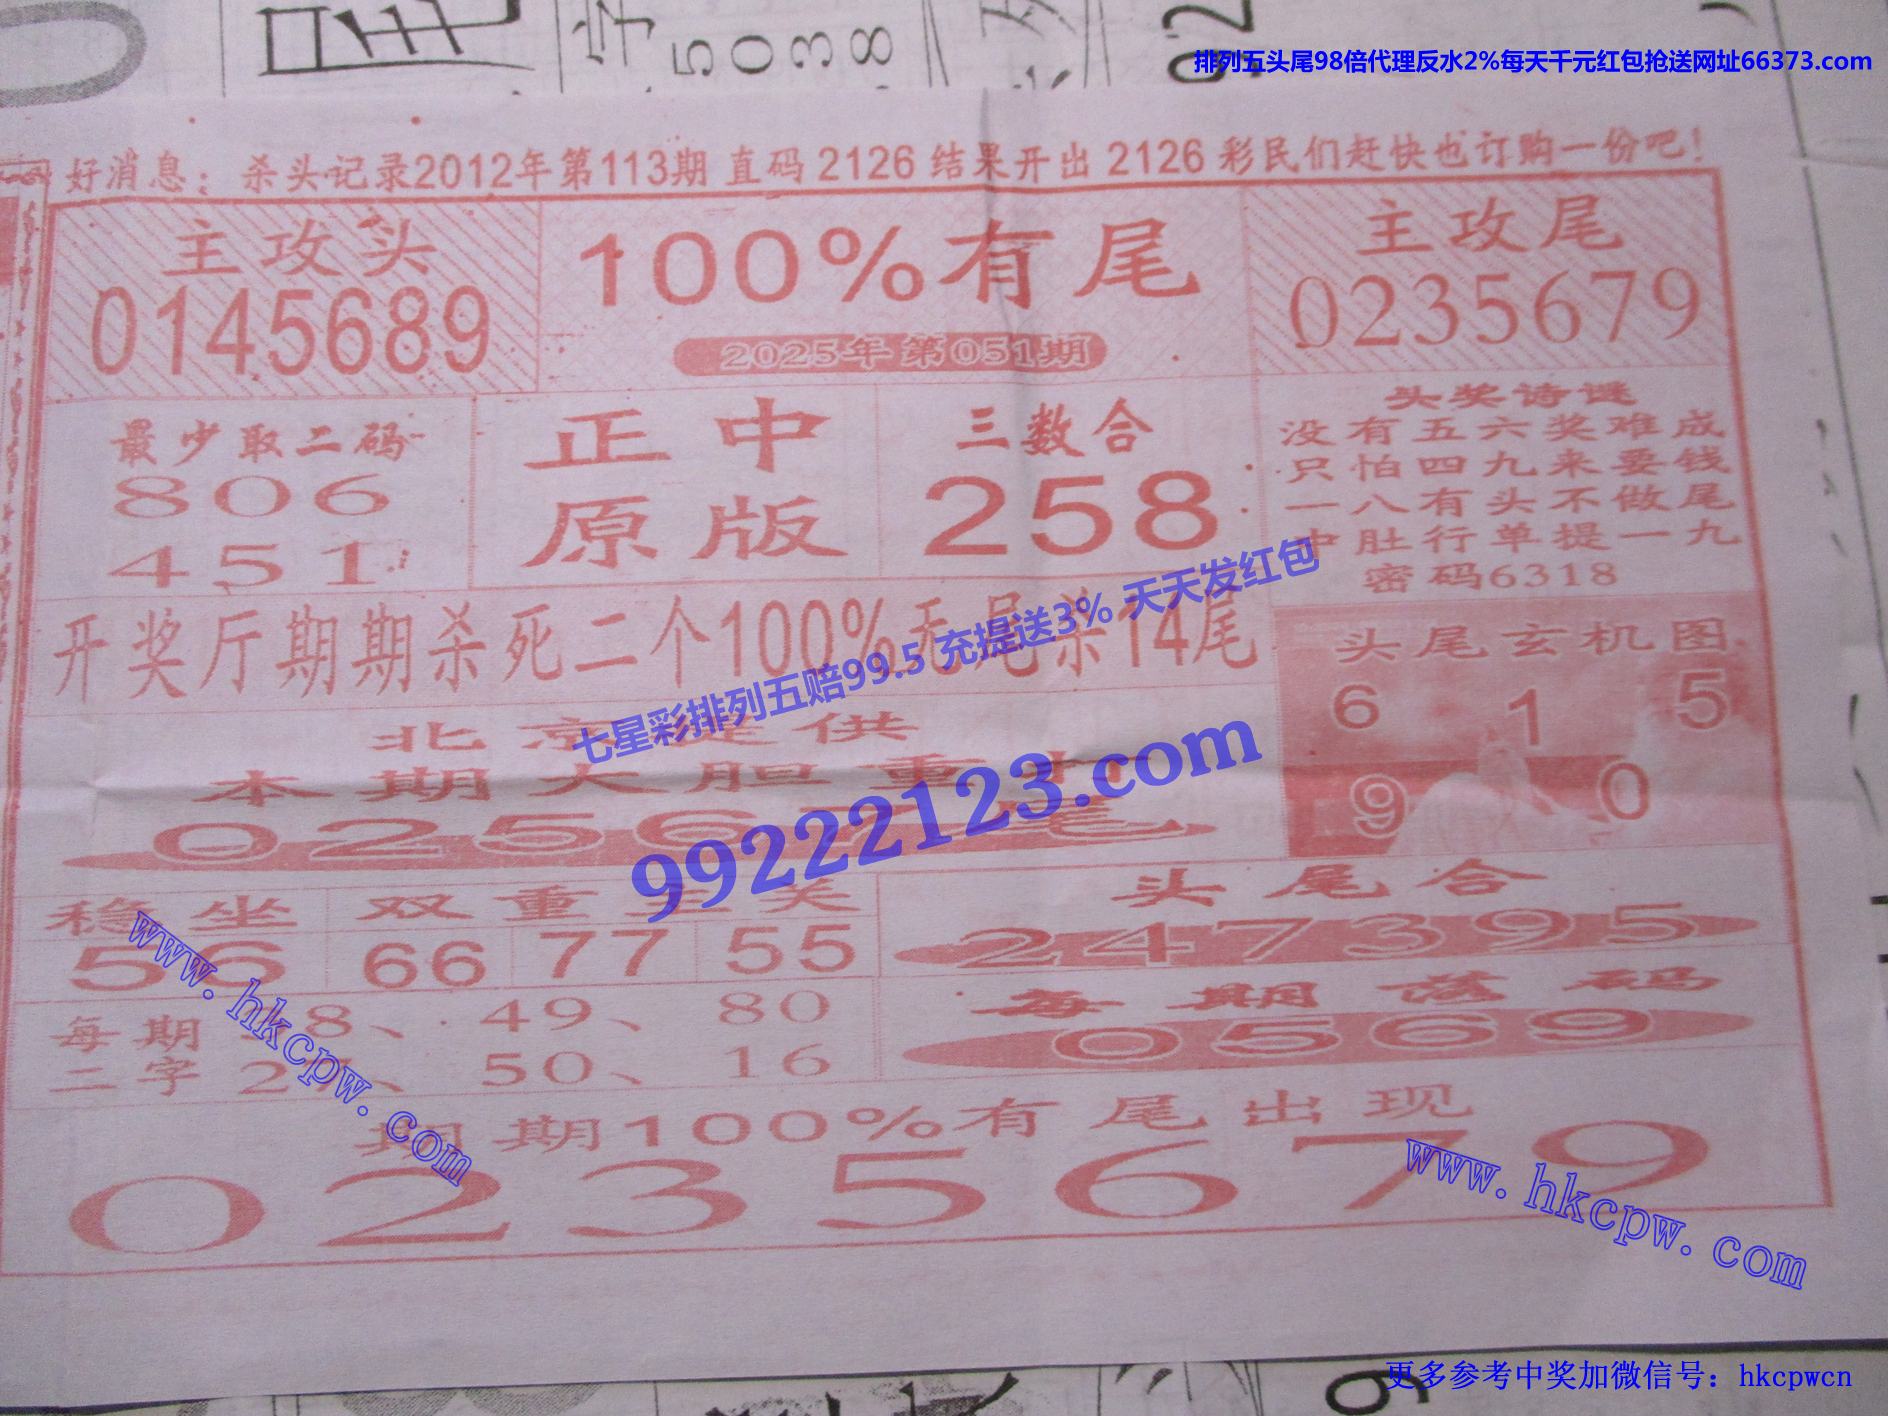 5038
排列五头尾98倍代理反水2%每天千元红包抢送网址66373.com
好消息：杀头记录2012年第113期 直码 2126 结果开出 2126 彩民们赶快也订购一份吧！
主攻头
0145689
100%有尾
2025年 第051期
主攻尾
0235679
最少取二码
806
451
正中
原版
三数合
258
头奖诗谜
没有五六奖难成
只怕四九来要钱
一八有头不做尾
中肚行单提一九
密码6318
开奖厅期期杀死二个100%无尾杀14尾
七星彩排列五赔99.5 充提送3% 天天发红包
头尾玄机图
6 1 5
9 0
北京提供
本期大胆重
99222123.com
0256 尾
稳坐
56
双重
66 77 55
头尾合
247395
每期
二字
8、49、80
27、50、16
每期落码
0569
www.hkcpw.com
期期100%有尾出现
0235679
www.hkcpw.com
更多参考中奖加微信号：hkcpwcn